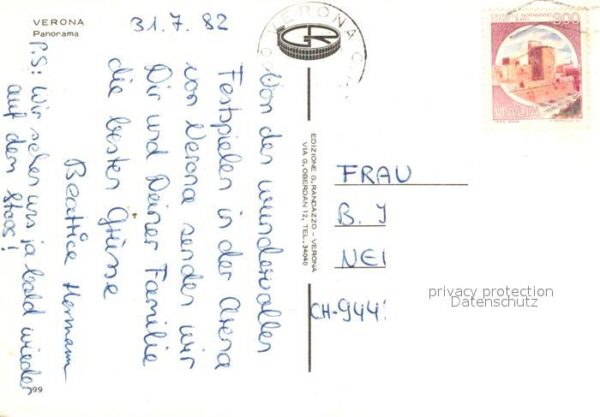 VERONA
Panorama
31.7.82
VERONA C
Von den wundervollen
Festspielen in der Arena
von Verona senden wir
Dir und Deiner Familie
die besten Grüsse
Beatrice Hermann
P.S: Wir sehen uns ja bald wieder
auf dem Stoos!
99
EDIZIONE G. RANDAZZO - VERONA
VIA G. OBERDAN 12, TEL. 34040
300
ITALIA
FRAU
B. J
NEI
CH-944
privacy protection
Datenschutz